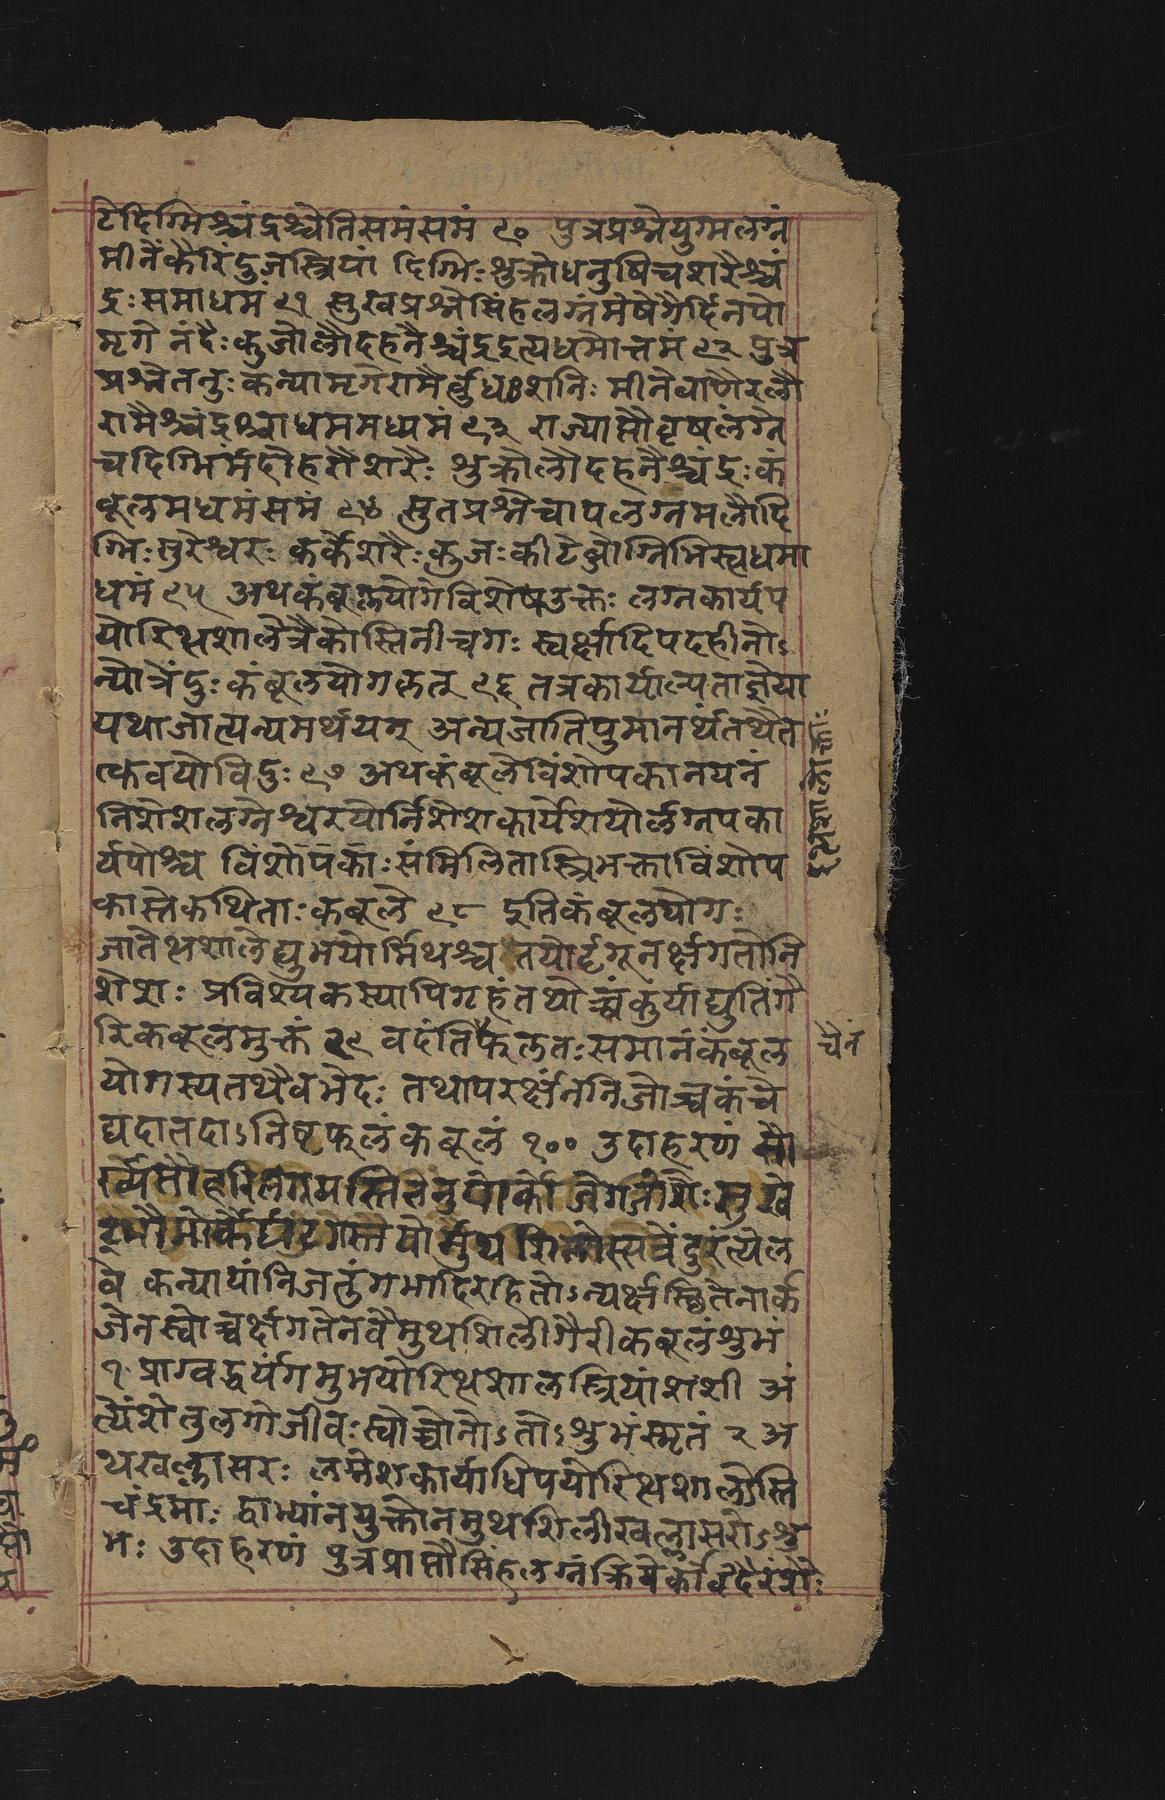 टेदिग्मिश्चंद्रश्चेतिसमंसमं ९० पुत्रप्रश्नेयुग्मलग्नं
मीनेर्कैरिंदुजस्त्रियां दिग्भिः शुक्रोधनुषिचशरैश्चं
द्रः समाधमं ९१ सुखप्रश्नेसिंहलग्नंमेषेगैर्दिनपो
मृगे नंदैः कुजोलौदहनैश्चंद्रइत्यधमोत्तमं ९२ पुत्र
प्रश्नेतनुः कन्यामृगेरामैर्बुधःशनिः मीनेबाणैरलौ
रामैश्चंद्रश्चाधममध्यमं ९३ राज्याप्तौवृषलग्ने
चदिग्भिर्मंदोहरौशरैः शुक्रोलौदहनैश्चंद्रः कं
बूलमधमंसमं ९४ सुतप्रश्नेचापलग्नमलौदि
ग्भिः सुरेश्वरः कर्केशरैः कुजः कीटेब्जोग्निभिस्त्वधमा
धमं ९५ अथकंबूलयोगेविशेषउक्तः लग्नकार्यप
योरित्थशालेत्रैकोस्तिनीचगः स्वर्क्षादिपदहीनोऽ
न्योत्रेंदुः कंबूलयोगलत् ९६ तत्रकार्याल्पताज्ञेया
यथाजात्यन्यमर्थयन् अन्यजातिपुमानर्थंतथैते
त्कवयोविदुः ९७ अथकंबूलेविंशोपकानयनं
निशेशलग्नेश्वरयोर्निशेशकार्येशयोर्लग्नपका
र्यपोश्च विंशोपकाः संमिलितास्त्रिभक्ताविंशोप
कास्तेकथिताः कबूले ९८ इतिकंबूलयोगः
जातेत्थशालेद्युभयोर्मिथश्च तयोर्दृगूनर्क्षगतोनि
शेशः प्रविश्यकस्यापिगृहंतथोच्चंकुर्याद्युतिंगै
रिकबूलमुक्तं ९९ वदंतिफलतः समानंकंबूल
योगस्यतथैवभेदः तथापरर्क्षंननिजोच्चकंचे
द्यदातदाऽनिष्टफलंकबूलं १०० उदाहरणं सौ
र्व्याप्तौहरिलग्नमस्तितनुपोर्कोजेगजांशैः सुखे
ड्भौमोर्कैर्घटगस्तयोर्मुथशिलोस्त्यत्रेंदुरंत्येल
वे कन्यायांनिजतुंगभादिरहितोऽन्यर्क्षस्थितेनार्क
जेनस्वोच्चर्क्षगतेनवैमुथशिलीगैरीकबूलंशुभं
१ प्राग्वद्धर्यर्गमुभयोरित्थशालस्त्रियांशशी अं
त्येंशेतुलगोजीवः स्वोच्चोनोऽतोऽशुभंस्मृतं २ अ
थखल्लासरः लग्नेशकार्याधिपयोरित्थशालोस्ति
चंद्रमाः द्वाभ्यांनयुक्तोनमुथशिलीखल्लासरोऽशु
भः उदाहरणं पुत्रप्राप्तौसिंहलग्नंक्रियेर्कोविदैरंशैः
चेनं